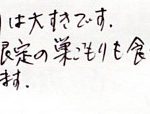 は大すきです.
限定の巣ごもりも食
ます.